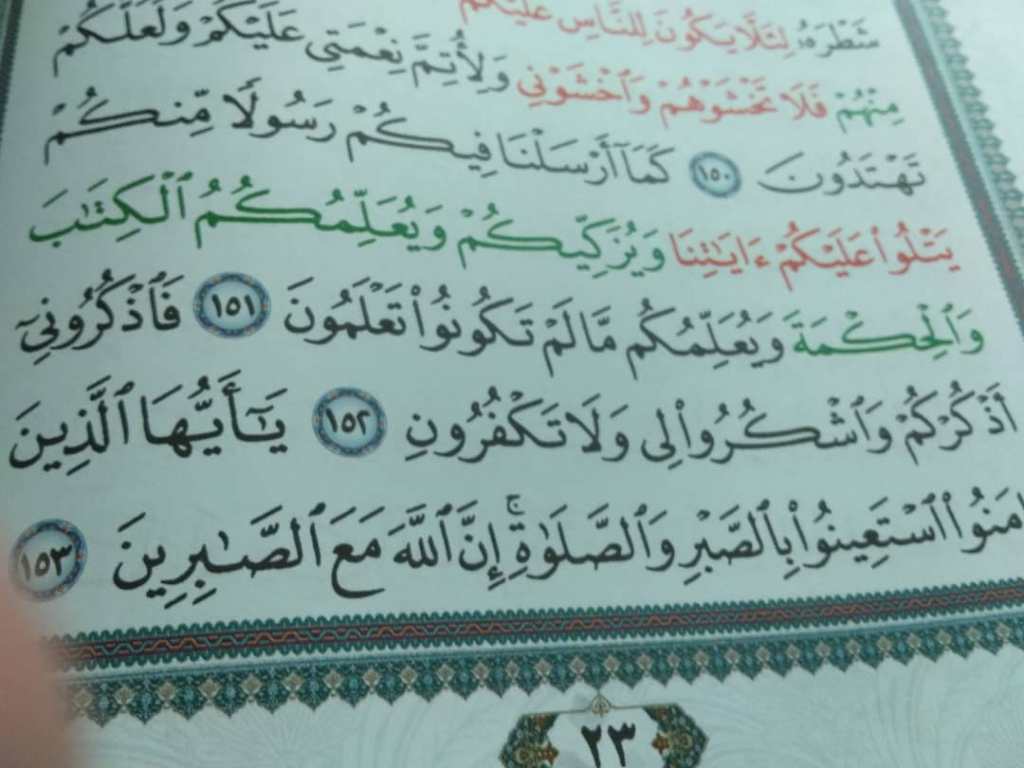 شَطْرَهُۥ لِئَلَّا يَكُونَ لِلنَّاسِ عَلَيْكُمْ
مِنْهُمْ فَلَا تَخْشَوْهُمْ وَٱخْشَوْنِى وَلِأُتِمَّ نِعْمَتِى عَلَيْكُمْ وَلَعَلَّكُمْ
تَهْتَدُونَ ١٥٠ كَمَآ أَرْسَلْنَا فِيكُمْ رَسُولًا مِّنكُمْ
يَتْلُوا۟ عَلَيْكُمْ ءَايَٰتِنَا وَيُزَكِّيكُمْ وَيُعَلِّمُكُمُ ٱلْكِتَٰبَ
وَٱلْحِكْمَةَ وَيُعَلِّمُكُم مَّا لَمْ تَكُونُوا۟ تَعْلَمُونَ ١٥١ فَٱذْكُرُونِىٓ
أَذْكُرْكُمْ وَٱشْكُرُوا۟ لِى وَلَا تَكْفُرُونِ ١٥٢ يَٰٓأَيُّهَا ٱلَّذِينَ
امَنُوا۟ ٱسْتَعِينُوا۟ بِٱلصَّبْرِ وَٱلصَّلَوٰةِ ۚ إِنَّ ٱللَّهَ مَعَ ٱلصَّٰبِرِينَ ١٥٣
٢٣